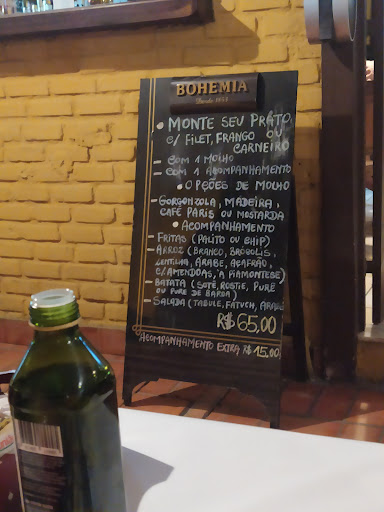 BOHEMIA
Desde 1853
• MONTE SEU PRATO
C/ FILET, FRANGO OU
CARNEIRO
- COM 1 MOLHO
- COM 1 ACOMPANHAMENTO
• OPÇÕES DE MOLHO
- GORGONZOLA, MADEIRA,
CAFÉ PARIS OU MOSTARDA
• ACOMPANHAMENTO
FRITAS (PALITO OU CHIP)
- ARROZ (BRANCO, BRÓCOLIS,
LENTILHA, ARABE, AÇAFRÃO,
C/AMENDOAS, A PIAMONTESE)
- BATATA (SOTÊ, ROSTIE, PURÊ
OU PURE DE BAROA)
- SALADA (TABULE, FATUCH, ARABE
R$ 65,00
ACOMPANHAMENTO EXTRA R$ 15,00